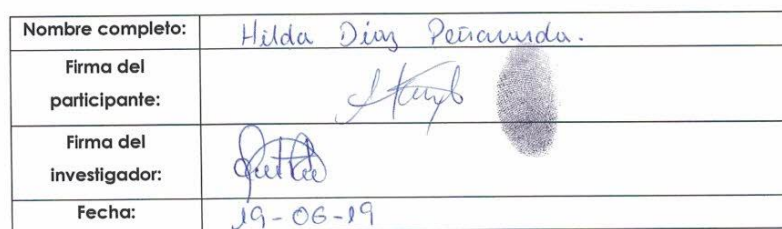 Nombre completo: Hilda Díaz Peñaranda.
Firma del
participante:
Firma del
investigador:
Fecha: 19-06-19